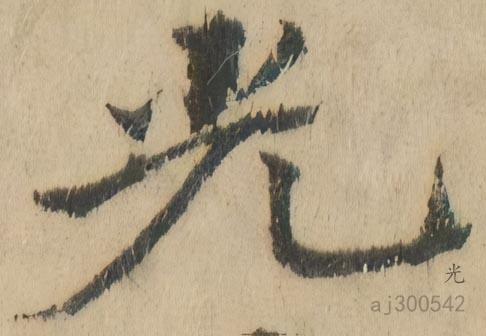 光
光
aj300542